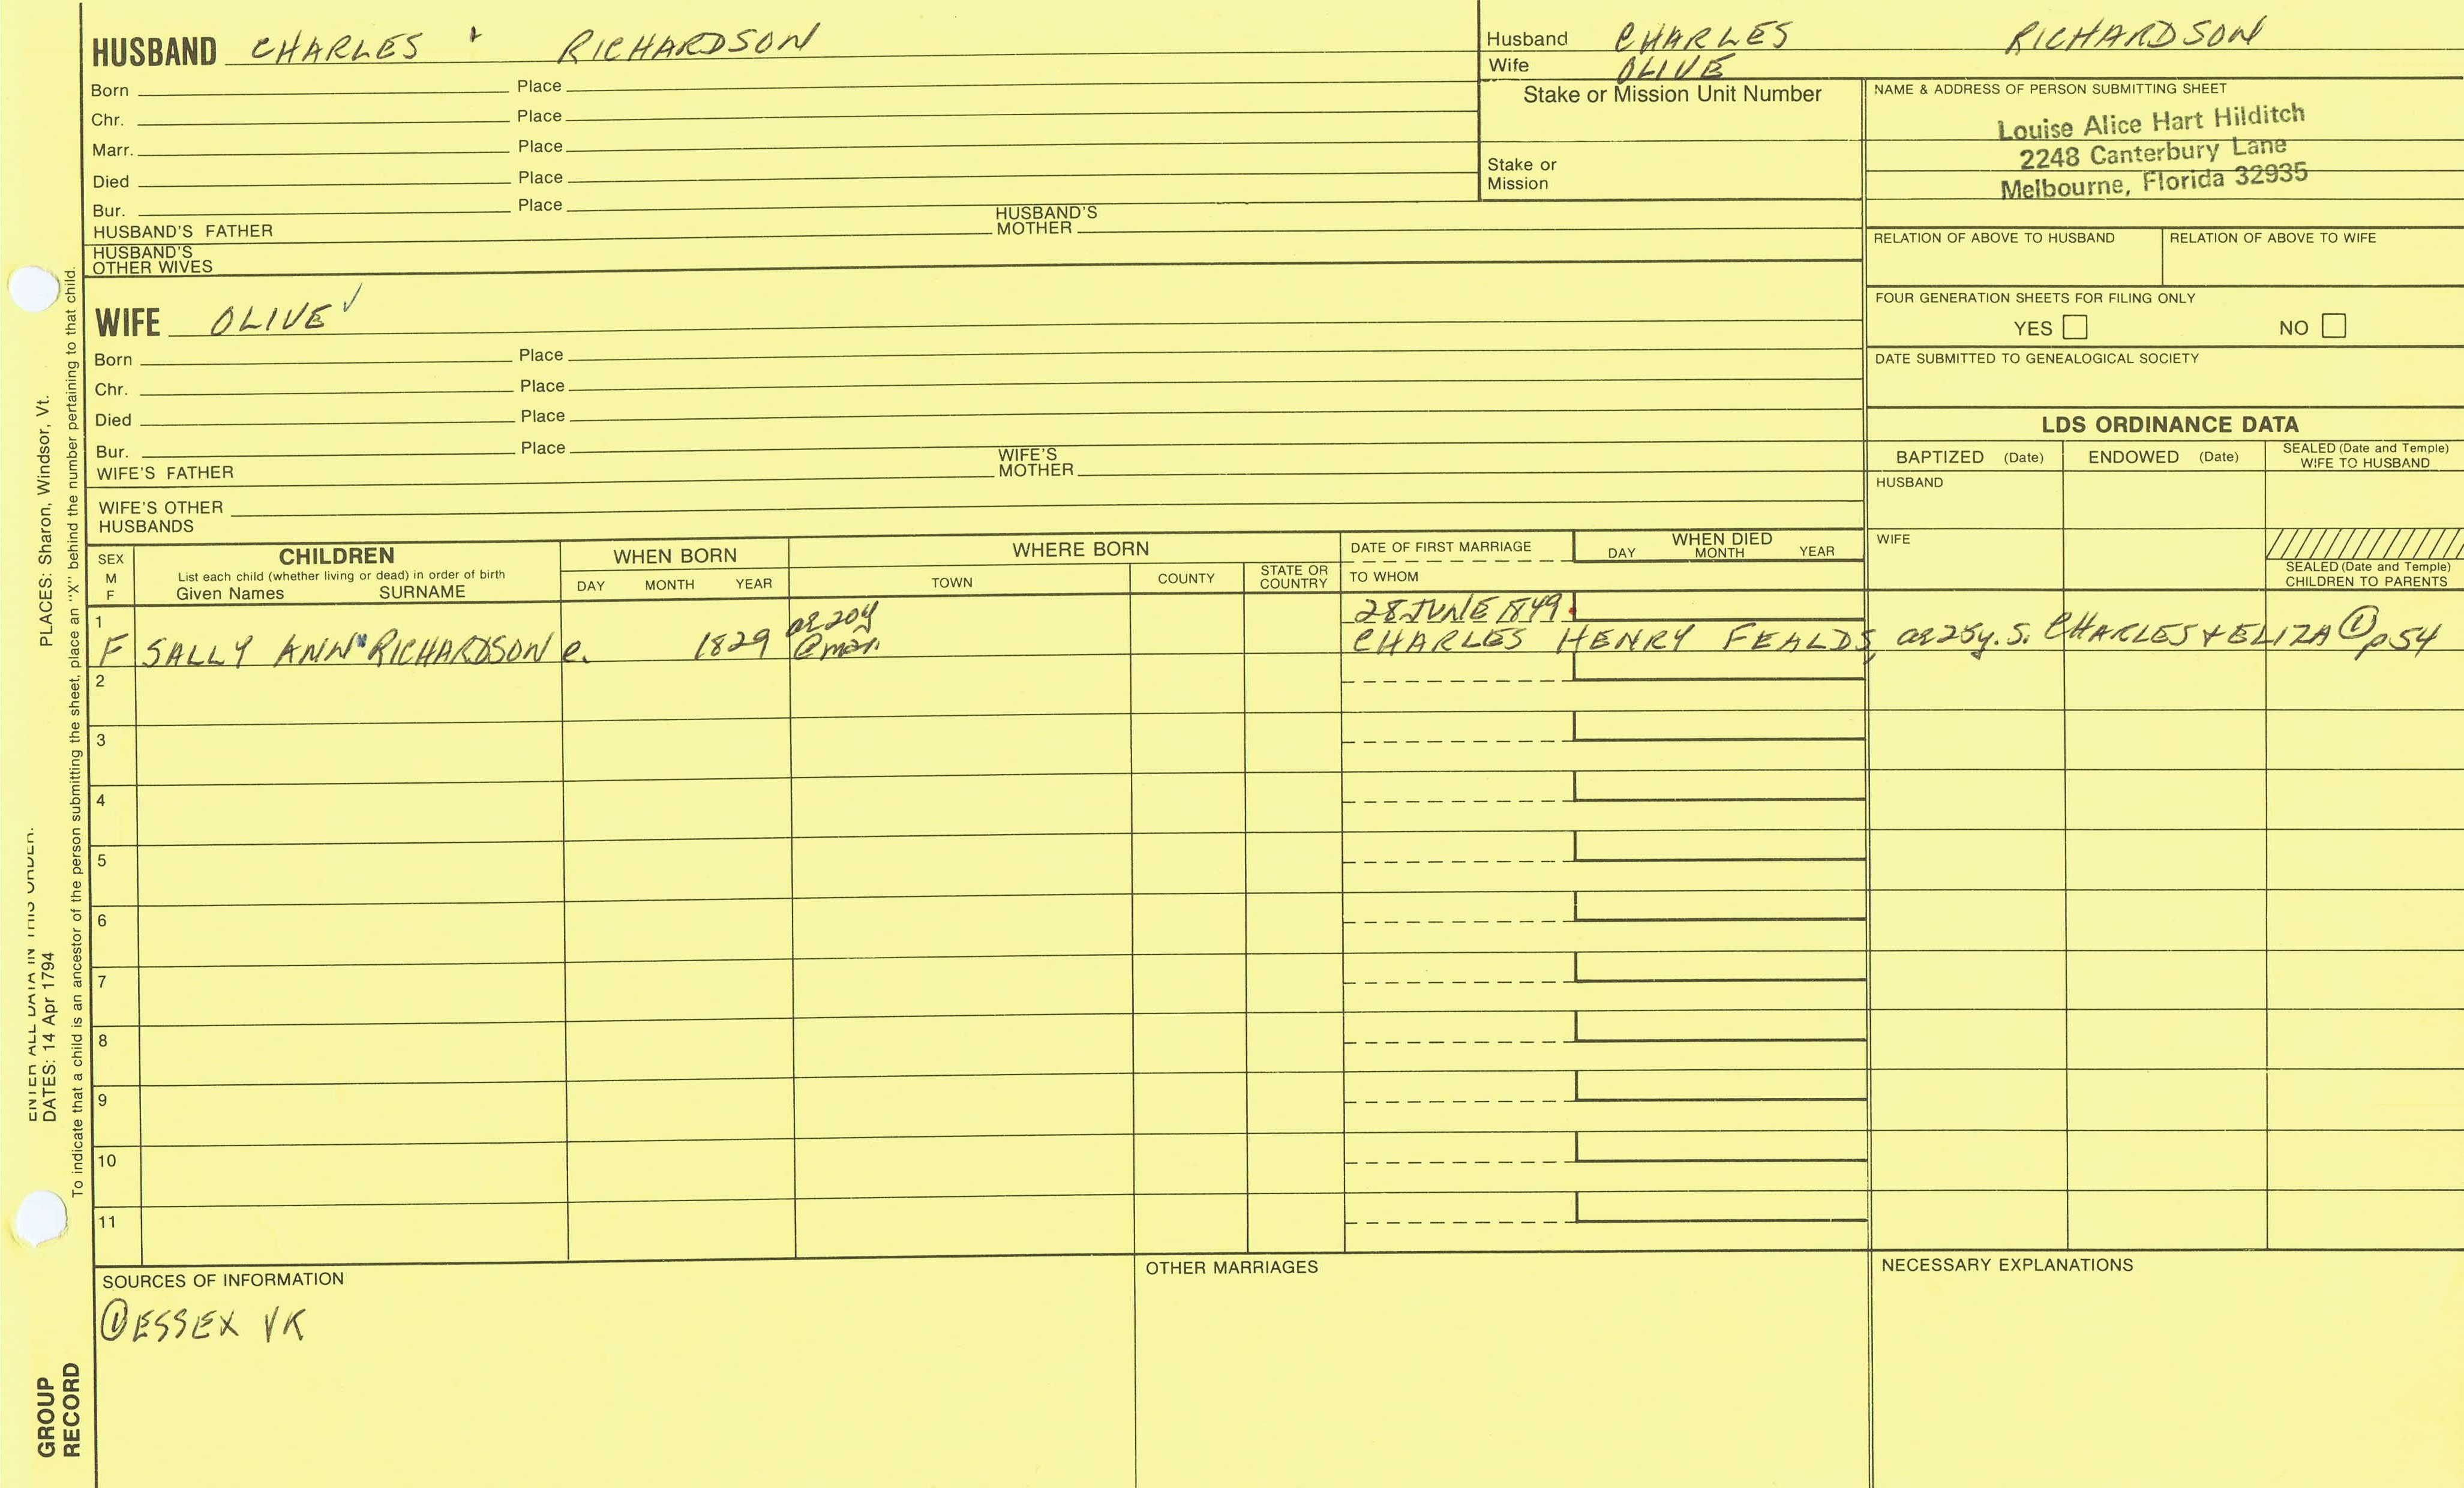 HUSBAND CHARLES RICHARDSON
Born Place
Chr. Place
Marr. Place
Died Place
Bur. Place
HUSBAND'S FATHER HUSBAND'S MOTHER
HUSBAND'S OTHER WIVES
Husband CHARLES RICHARDSON
Wife OLIVE
Stake or Mission Unit Number
Stake or
Mission
NAME & ADDRESS OF PERSON SUBMITTING SHEET
Louise Alice Hart Hilditch
2248 Canterbury Lane
Melbourne, Florida 32935
RELATION OF ABOVE TO HUSBAND RELATION OF ABOVE TO WIFE
FOUR GENERATION SHEETS FOR FILING ONLY
YES NO
DATE SUBMITTED TO GENEALOGICAL SOCIETY
WIFE OLIVE ✓
Born Place
Chr. Place
Died Place
Bur. Place
WIFE'S FATHER WIFE'S MOTHER
WIFE'S OTHER
HUSBANDS
LDS ORDINANCE DATA
BAPTIZED (Date) ENDOWED (Date) SEALED (Date and Temple) WIFE TO HUSBAND
HUSBAND
WIFE
SEALED (Date and Temple)
CHILDREN TO PARENTS
SEX
M
F
CHILDREN
List each child (whether living or dead) in order of birth
Given Names SURNAME
WHEN BORN
DAY MONTH YEAR
WHERE BORN
TOWN COUNTY STATE OR COUNTRY
DATE OF FIRST MARRIAGE
TO WHOM
WHEN DIED
DAY MONTH YEAR
1 ae 20y 28 JUNE 1849
F SALLY ANN RICHARDSON c. 1829 @mar. CHARLES HENRY FEALDS, ae 25y. S. CHARLES + ELIZA ① p54
2
3
4
5
6
7
8
9
10
11
SOURCES OF INFORMATION
① ESSEX VR
OTHER MARRIAGES
NECESSARY EXPLANATIONS
ENTER ALL DATA IN THIS ORDER:
DATES: 14 Apr 1794 PLACES: Sharon, Windsor, Vt.
To indicate that a child is an ancestor of the person submitting the sheet, place an "X" behind the number pertaining to that child.
GROUP
RECORD